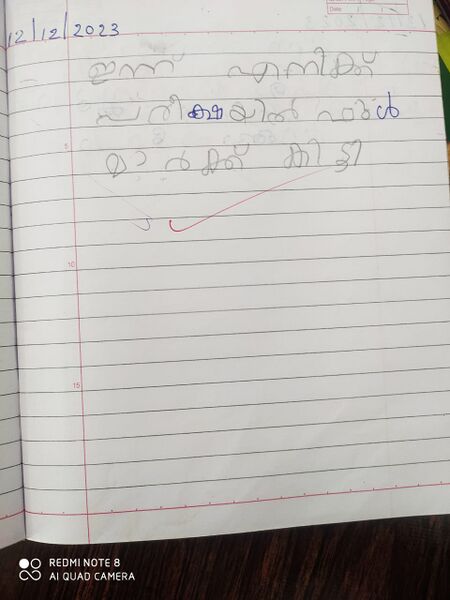 12/12/2023
Date
ഇന്ന് എനിക്ക്
പരീക്ഷയിൽ ഫുൾ
മാർക്ക് കിട്ടി
5
10
15
REDMI NOTE 8
AI QUAD CAMERA